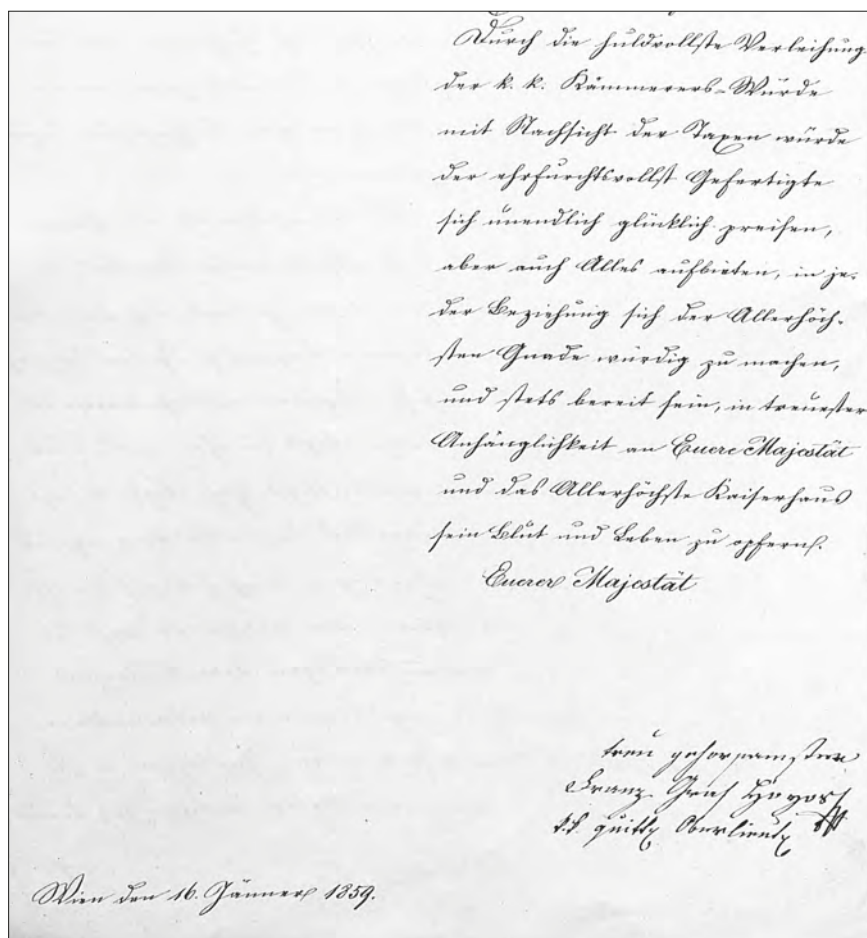 Durch die huldvollste Verleihung
der k. k. Kämmerers-Würde
mit Nachsicht der Taxen würde
der ehrfurchtsvollst Gefertigte
sich unendlich glücklich preisen,
aber auch Alles aufbieten, in je-
der Beziehung sich der Allerhöch-
sten Gnade würdig zu machen,
und stets bereit sein, in treuester
Anhänglichkeit an Euere Majestät
und das Allerhöchste Kaiserhaus
sein Blut und Leben zu opfern.
Euerer Majestät
treu gehorsamster
Franz Graf Hoyos
k.k. quitt. Oberlieut.
Wien den 16. Jänner 1859.